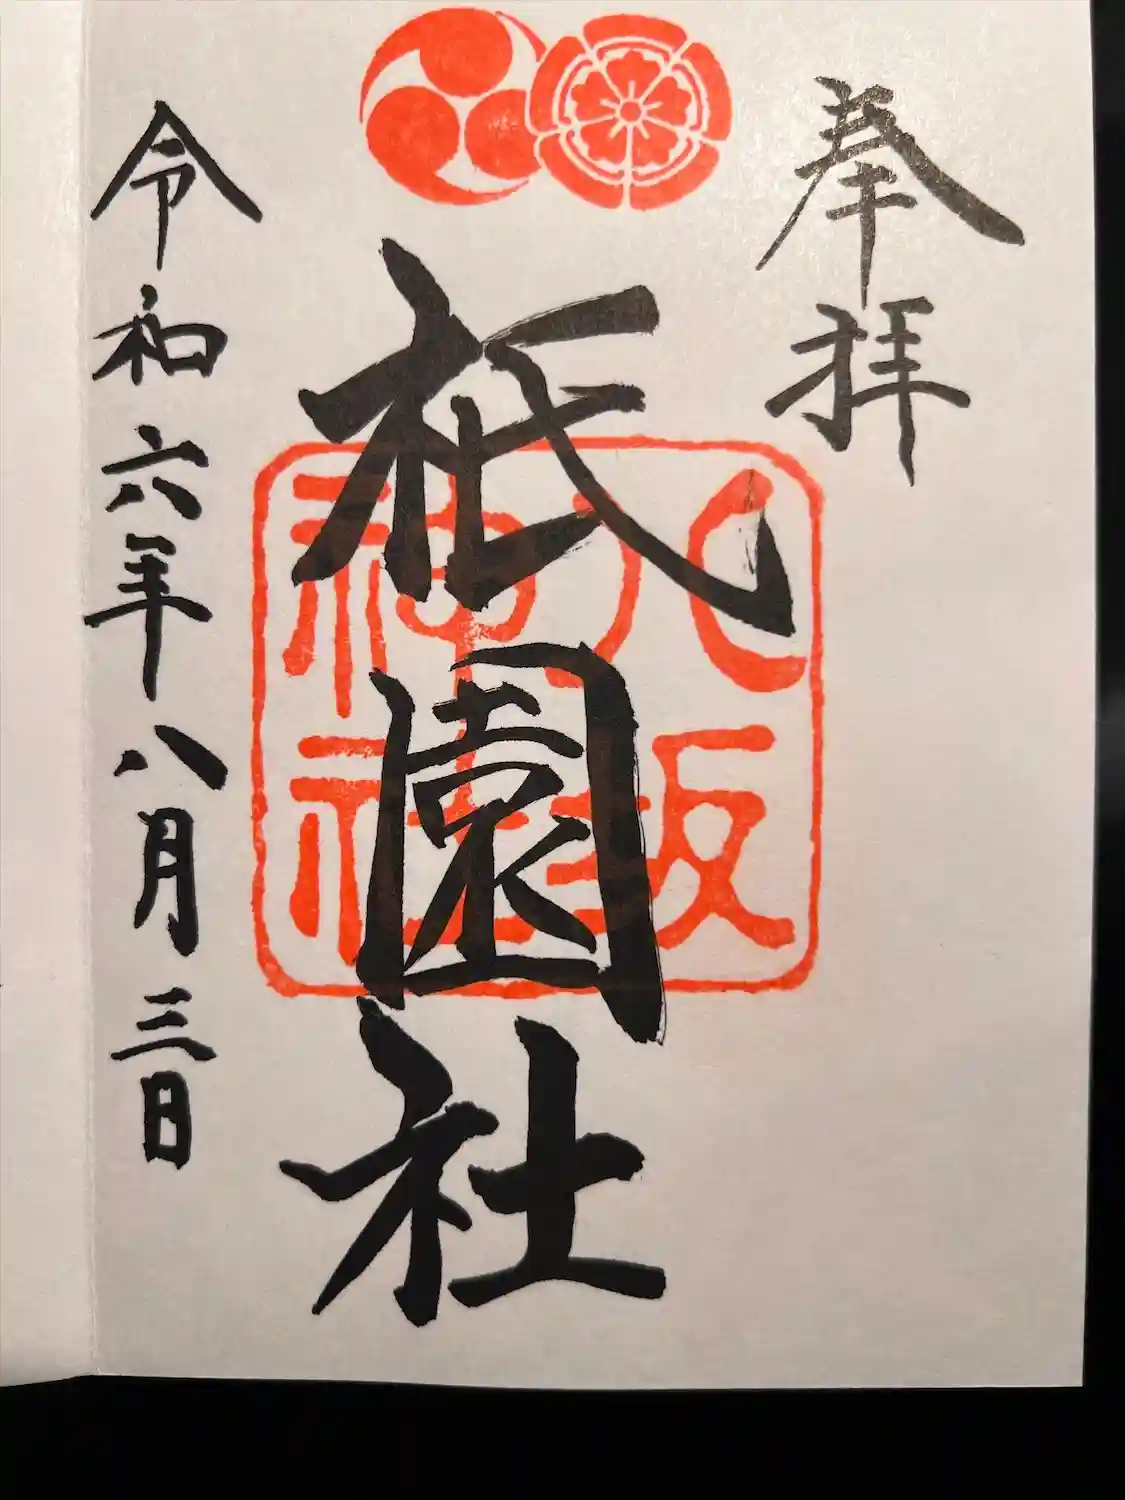 奉拝
祇園社
八坂
神社
令和六年八月三日